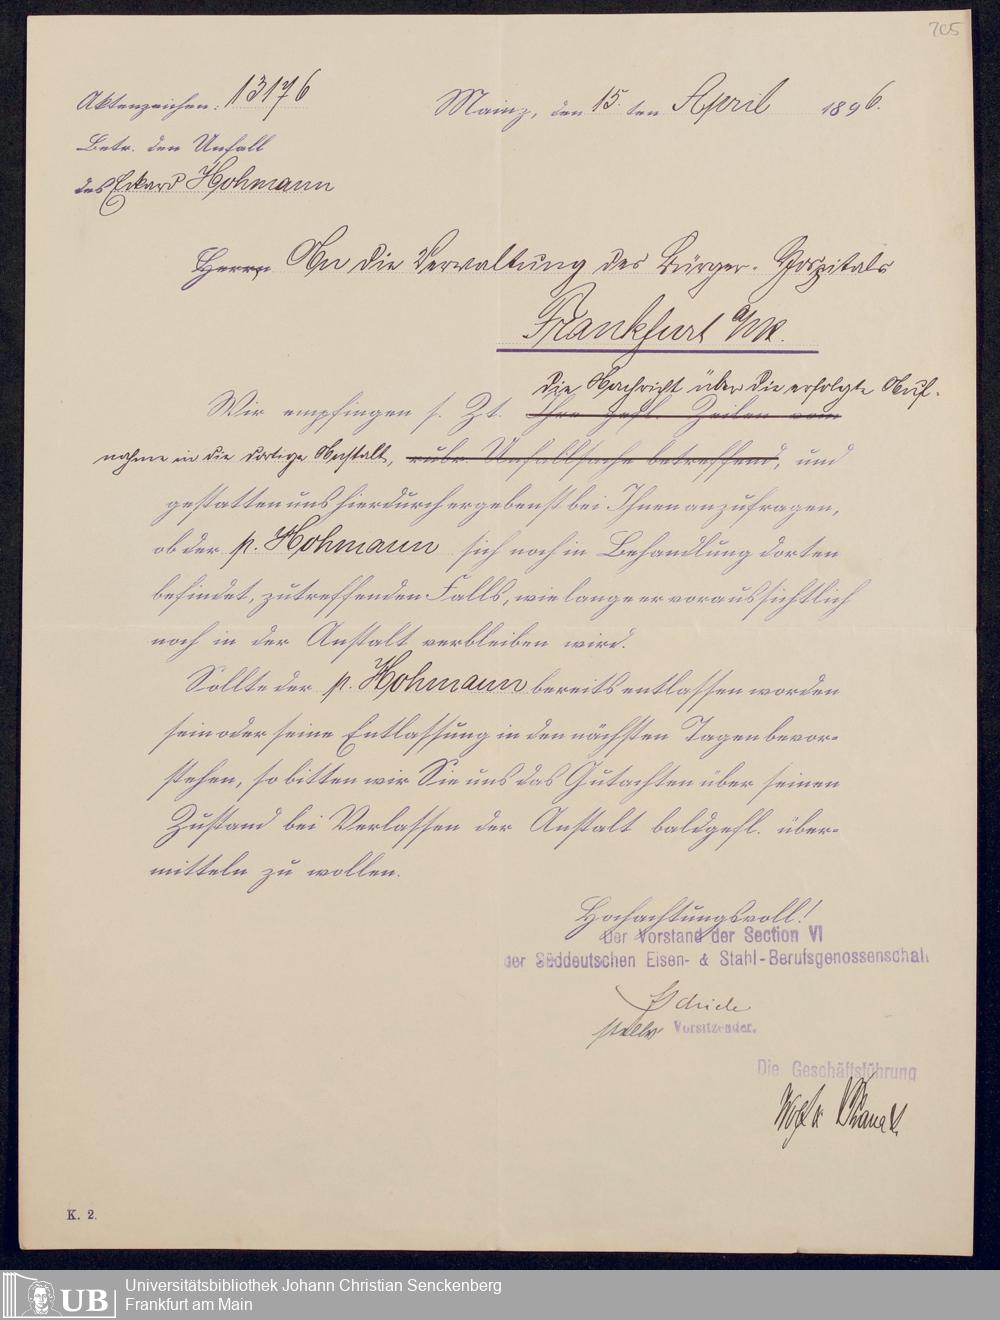 705
Aktenzeichen: 13176
Mainz, den 15. ten April 1896.
Betr. den Unfall
des Eckard Hohmann
Herrn An die Verwaltung des Bürger-Hospitals
Frankfurt a/M.
die Nachricht über die erfolgte Auf-
Wir empfingen s. Zt. Ihre gefl. Zeilen vom
nahme in die dortige Anstalt, rubr. Unfallsache betreffend, und
gestatten uns hierdurch ergebenst bei Ihnen anzufragen,
ob der p. Hohmann sich noch in Behandlung dorten
befindet, zutreffenden Falls, wie lange er voraussichtlich
noch in der Anstalt verbleiben wird.
Sollte der p. Hohmann bereits entlassen worden
sein oder seine Entlassung in den nächsten Tagen bevor-
stehen, so bitten wir Sie uns das Gutachten über seinen
Zustand bei Verlassen der Anstalt baldgefl. über-
mitteln zu wollen.
Hochachtungsvoll!
Der Vorstand der Section VI
der Süddeutschen Eisen- & Stahl-Berufsgenossenschaft
stellv Vorsitzender.
Die Geschäftsführung
K. 2.
UB
Universitätsbibliothek Johann Christian Senckenberg
Frankfurt am Main